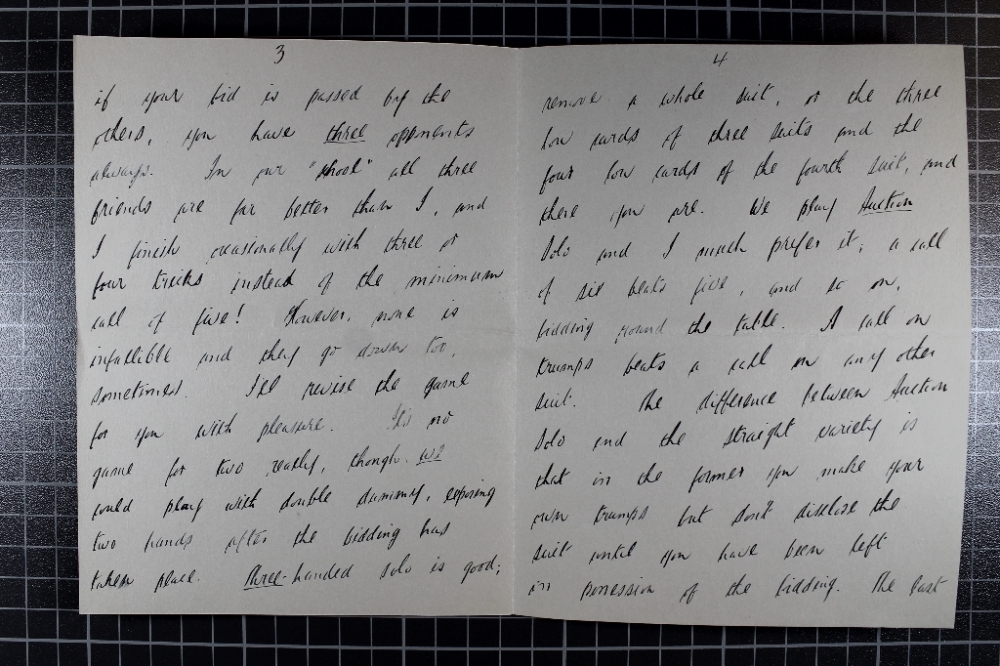 3
if your bid is passed by the
others, you have three opponents
always. In our "school" all three
friends are far better than I, and
I finish occasionally with three or
four tricks instead of the minimum
call of five! However, none is
infallible and they go down too,
sometimes. I'll revise the game
for you with pleasure. It's no
game for two really, though we
could play with double dummy, exposing
two hands after the bidding has
taken place. Three-handed solo is good;
4
remove a whole suit, or the three
low cards of three suits and the
four low cards of the fourth suit, and
there you are. We play Auction
Solo and I much prefer it; a call
of six beats five, and so on,
bidding round the table. A call on
trumps beats a call on any other
suit. The difference between Auction
Solo and the straight variety is
that in the former you make your
own trumps but don't disclose the
suit until you have been left
in possession of the bidding. The last